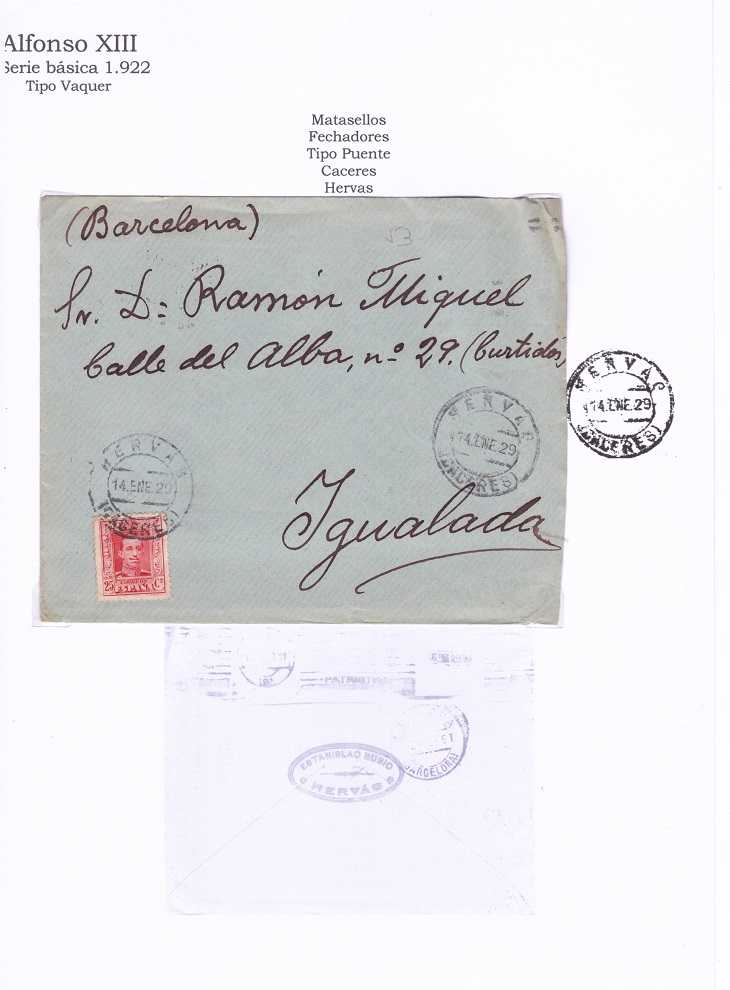 Alfonso XIII
Serie básica 1.922
Tipo Vaquer
Matasellos
Fechadores
Tipo Puente
Caceres
Hervas
(Barcelona)
Sr. D: Ramón Miguel
Calle del Alba, nº 29. (Curtidos)
HERVAS
14.ENE.29
(CACERES)
HERVAS
14.ENE.29
(CACERES)
HERVAS
14.ENE.29
(CACERES)
Igualada
CORREOS
25 ESPAÑA Cs
BARCELONA)
ESTANISLAO RUBIO
HERVÁS